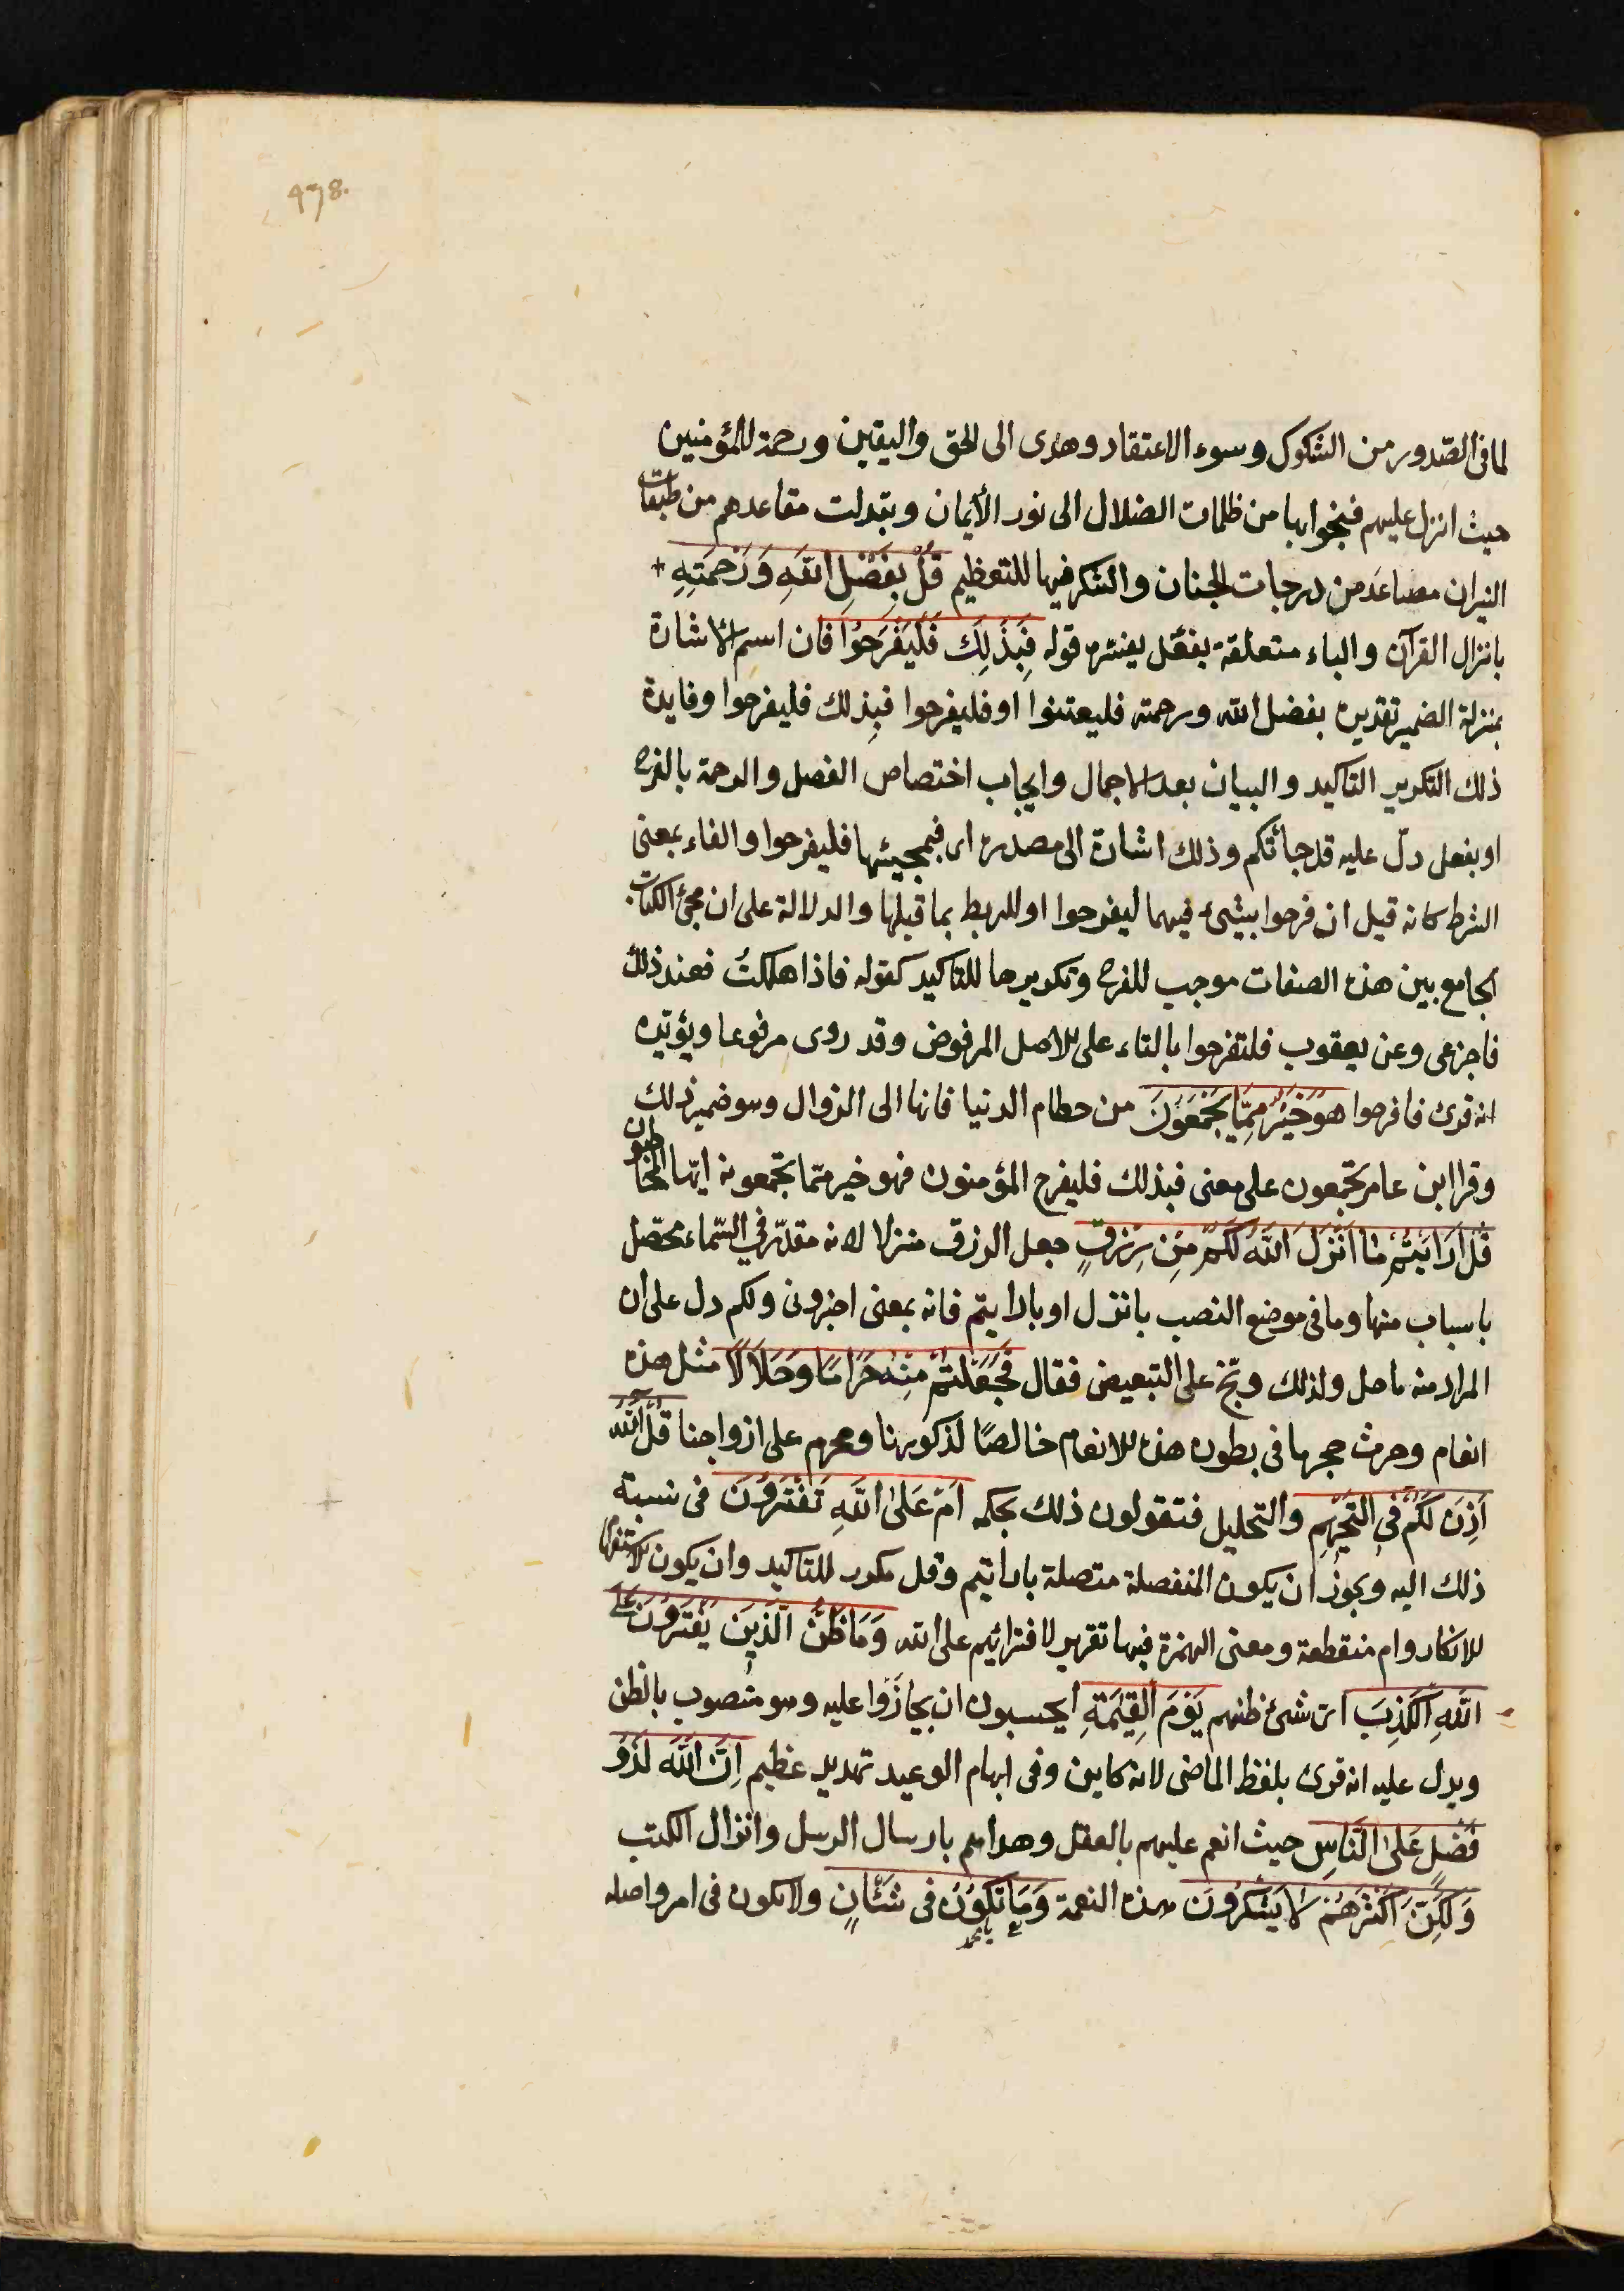 478.
لما في الصدور من الشكوك وسوء الاعتقاد وهدى الى الحق واليقين ورحمة للمؤمنين
حيث انزل عليهم فنجوا بها من ظلمات الضلال الى نور الأيمان وتبدلت مقاعدهم من طبقات
النيران مصاعد من درجات الجنان والتنكير فيها للتعظيم قُلْ بِفَضْلِ اللَّهِ وَرَحْمَتِهِ +
بانزال القرآن والباء متعلقة بفعل يفسّره قوله فَبِذَلِكَ فَلْيَفْرَحُوا فان اسم الاشارة
بمنزلة الضمير تقديره بفضل الله ورحمته فليعتنوا او فليفرحوا فبِذلك فليفرحوا وفايدة
ذلك التكرير التاكيد والبيان بعد الاجمال وايجاب اختصاص الفضل والرحمة بالفرح
او بفعل دلّ عليه قد جاءتكم وذلك اشارة الى مصدره اى فبمجيئها فليفرحوا والفاء بمعنى
الشرط كانه قيل ان فرحوا بشئ فبهما ليفرحوا او للربط بما قبلها والدلالة على ان مجئ الكتاب
الجامع بين هذه الصفات موجب للفرح وتكريرها للتاكيد كقوله فاذا هلكتُ فعند ذلك
فاجزعى وعن يعقوب فلتفرحوا بالتاء على الاصل المرفوض وقد روى مرفوعا ويؤيّده
انه قرئ فافرحوا هُوَ خَيْرٌ مِمَّا يَجْمَعُونَ من حطام الدنيا فانها الى الزوال وهو ضمير ذلك
وقرا ابن عامر تجمعون على معنى فبذلك فليفرح المؤمنون فهو خير ممّا تجمعونه ايّها المخاطبون
قُلْ أَرَأَيْتُمْ مَا أَنْزَلَ اللَّهُ لَكُمْ مِنْ رِزْقٍ جعل الرزق منزلا لانه مقدّر في السّماء محصّل
باسباب منها وما فى موضع النصب بانزل او بارايتم فانه بمعنى اخبرونى ولكم دل على ان
المراد منه ما حل ولذلك وبّخ على التبعيض فقال فَجَعَلْتُمْ مِنْهُ حَرَامًا وَحَلَالًا مثل هذه
انعام وحرث حجر ما فى بطون هذه الانعام خالصًا لذكورنا ومحرم على ازواجنا قُلْ آللَّهُ
أَذِنَ لَكُمْ فى التحريم والتحليل فتقولون ذلك بحكمه أَمْ عَلَى اللَّهِ تَفْتَرُونَ فى نسبة
ذلك اليه ويجوز ان يكون المنفصلة متصلة بارأيتم وقل مكرر للتاكيد وان يكون الاستفهام
للانكار وام منقطعة ومعنى الهمزة فيها تقرير لافترائهم على الله وَمَا ظَنُّ الَّذِينَ يَفْتَرُونَ عَلَى
اللَّهِ الْكَذِبَ اىّ شئ ظنهم يَوْمَ الْقِيَمَةِ ايحسبون ان يجازَوْا عليه وهو منصوب بالظن
ويدل عليه انه قرئ بلفظ الماضى لانه كاين وفى ابهام الوعيد تهديد عظيم إِنَّ اللَّهَ لَذُو
فَضْلٍ عَلَى النَّاسِ حيث انعم عليهم بالعقل وهداهم بارسال الرسل وانزال الكتب
وَلَكِنَّ أَكْثَرَهُمْ لَا يَشْكُرُونَ هذه النعمة وَمَا تَكُونُ فى شَأْنٍ ولا تكون فى امر واصله
يا محمد